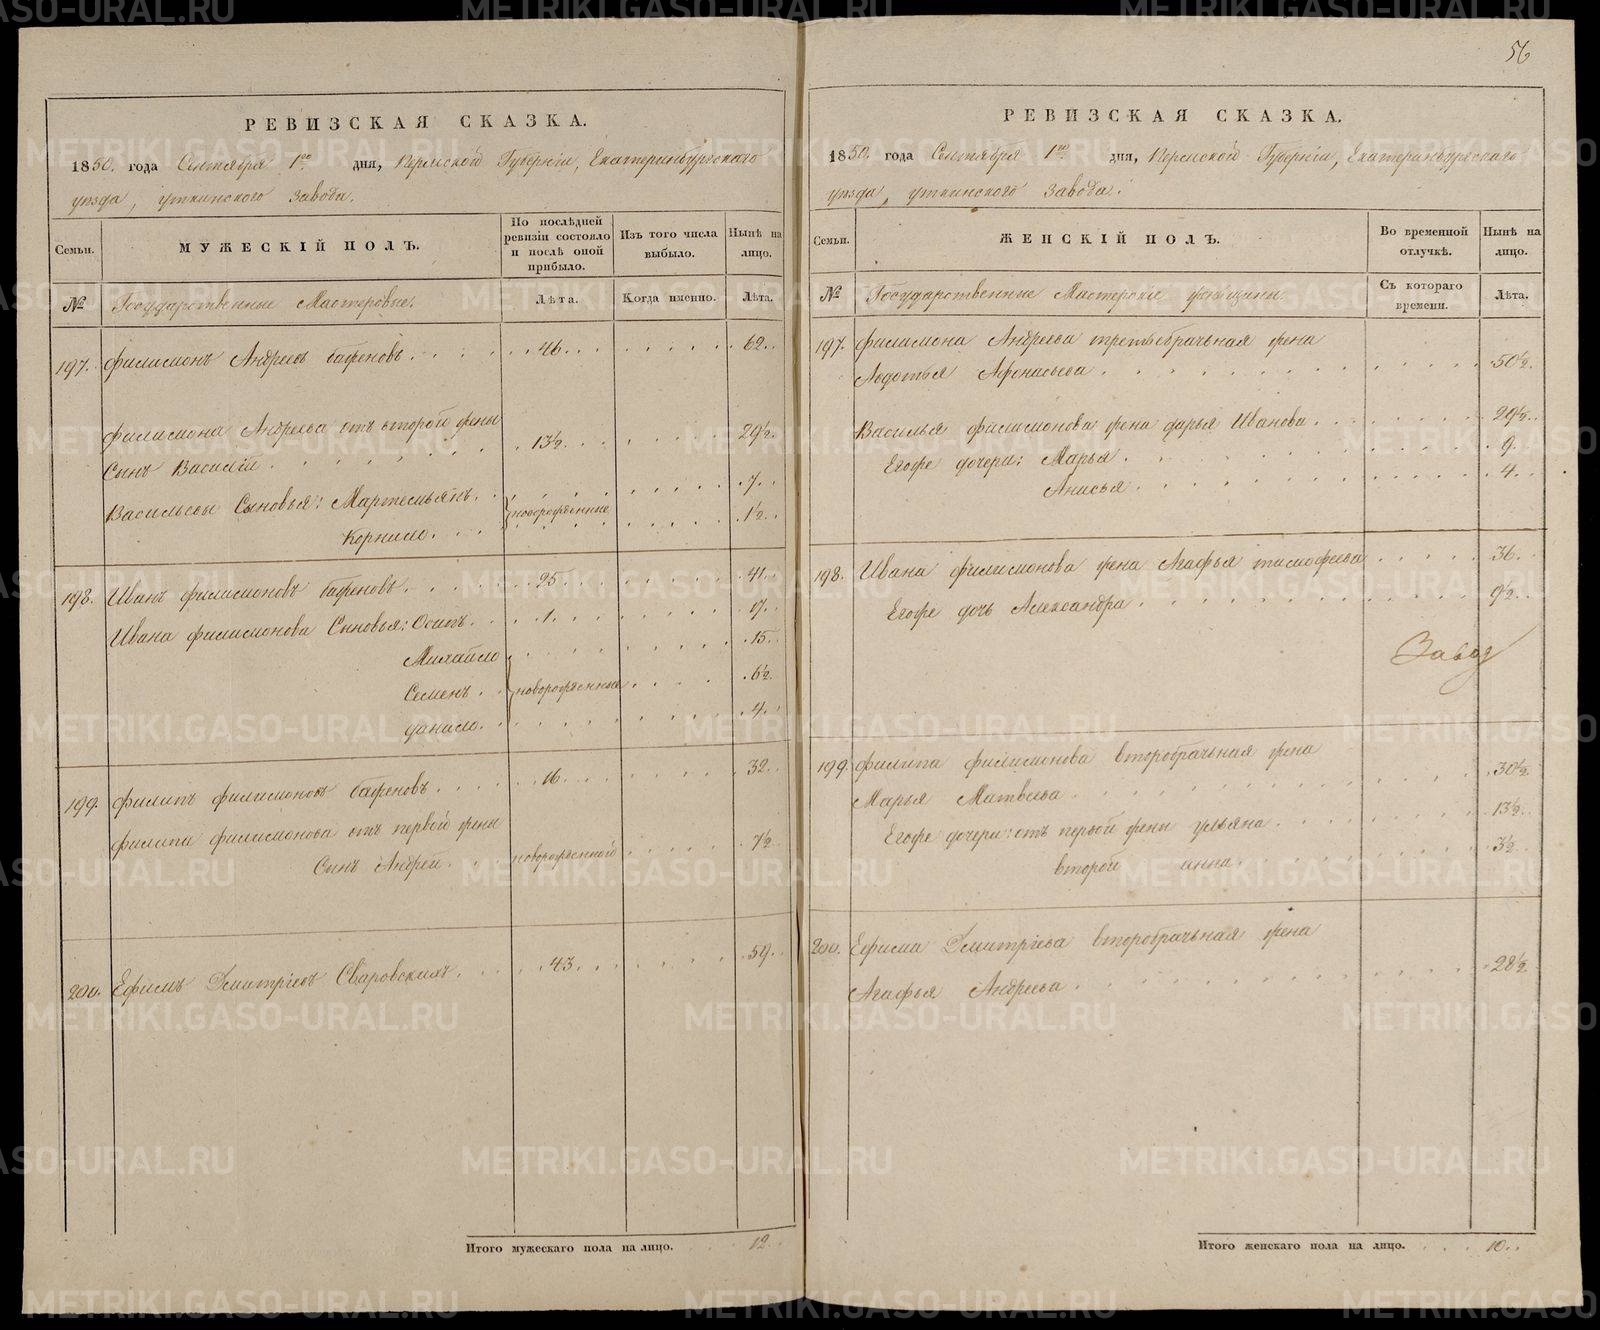 56
РЕВИЗСКАЯ СКАЗКА.
1850. года Сентября 1го дня, Пермской Губерніи, Екатеринбургскаго
уѣзда, Уткинского Завода.
Семьи.
МУЖЕСКІЙ ПОЛЪ.
По послѣдней ревизіи состояло и послѣ оной прибыло.
Изъ того числа выбыло.
Нынѣ на лицо.
№
Государственные Мастеровые.
Лѣта.
Когда именно.
Лѣта.
197. Филимонъ Андреевъ Баженовъ . 46. 62.
Филимона Андреева отъ второй жены
Сынъ Василій . 13½. 29½.
Васильевы Сыновья: Мартемьянъ . 7.
новорожденные
Корнило . 1½.
198. Иванъ Филимоновъ Баженовъ . 25. 41.
Ивана Филимонова Сыновья: Осипъ . 1. 17.
Михайло 15.
Семенъ . новорожденные 6½.
Данило . 4.
199. Филипъ Филимоновъ Баженовъ . 16. 32.
Филипа Филимонова отъ первой жены
Сынъ Андрей . новорожденной 7½.
200. Ефимъ Дмитріевъ Сваровскихъ . 43. 59.
Итого мужескаго пола на лицо. 12.
РЕВИЗСКАЯ СКАЗКА.
1850. года Сентября 1го дня, Пермской Губерніи, Екатеринбургскаго
уѣзда, Уткинского Завода.
Семьи.
ЖЕНСКІЙ ПОЛЪ.
Во временной отлучкѣ.
Нынѣ на лицо.
№
Государственные Мастерскіе женщины.
Съ котораго времени.
Лѣта.
197. Филимона Андреева третьебрачьная жена
Авдотья Афонасьева . 50½.
Василья Филимонова жена Дарья Иванова . 29½.
Егоже дочери: Марья . 9.
Анисья . 4.
198. Ивана Филимонова жена Агафья Тимофеева . 36.
Егоже дочь Александра . 9½.
Завод
199. Филипа Филимонова второбрачьная жена
Марья Матвеева . 30½.
Егоже дочери: отъ первой жены Ульяна . 13½.
второй Анна . 3½.
200. Ефима Дмитріева второбрачьная жена
Агафья Андреева . 28½.
Итого женскаго пола на лицо. 10.
METRIKI.GASO-URAL.RU